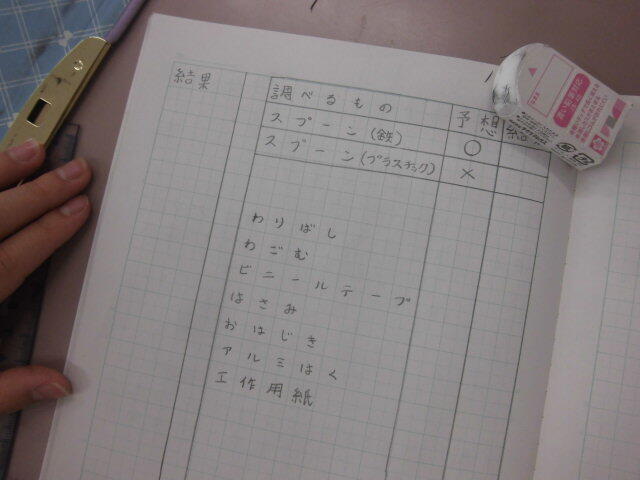 結果
調べるもの 予想 結
スプーン(鉄) ○
スプーン(プラスチック) ×
わりばし
わごむ
ビニールテープ
はさみ
おはじき
アルミはく
工作用紙